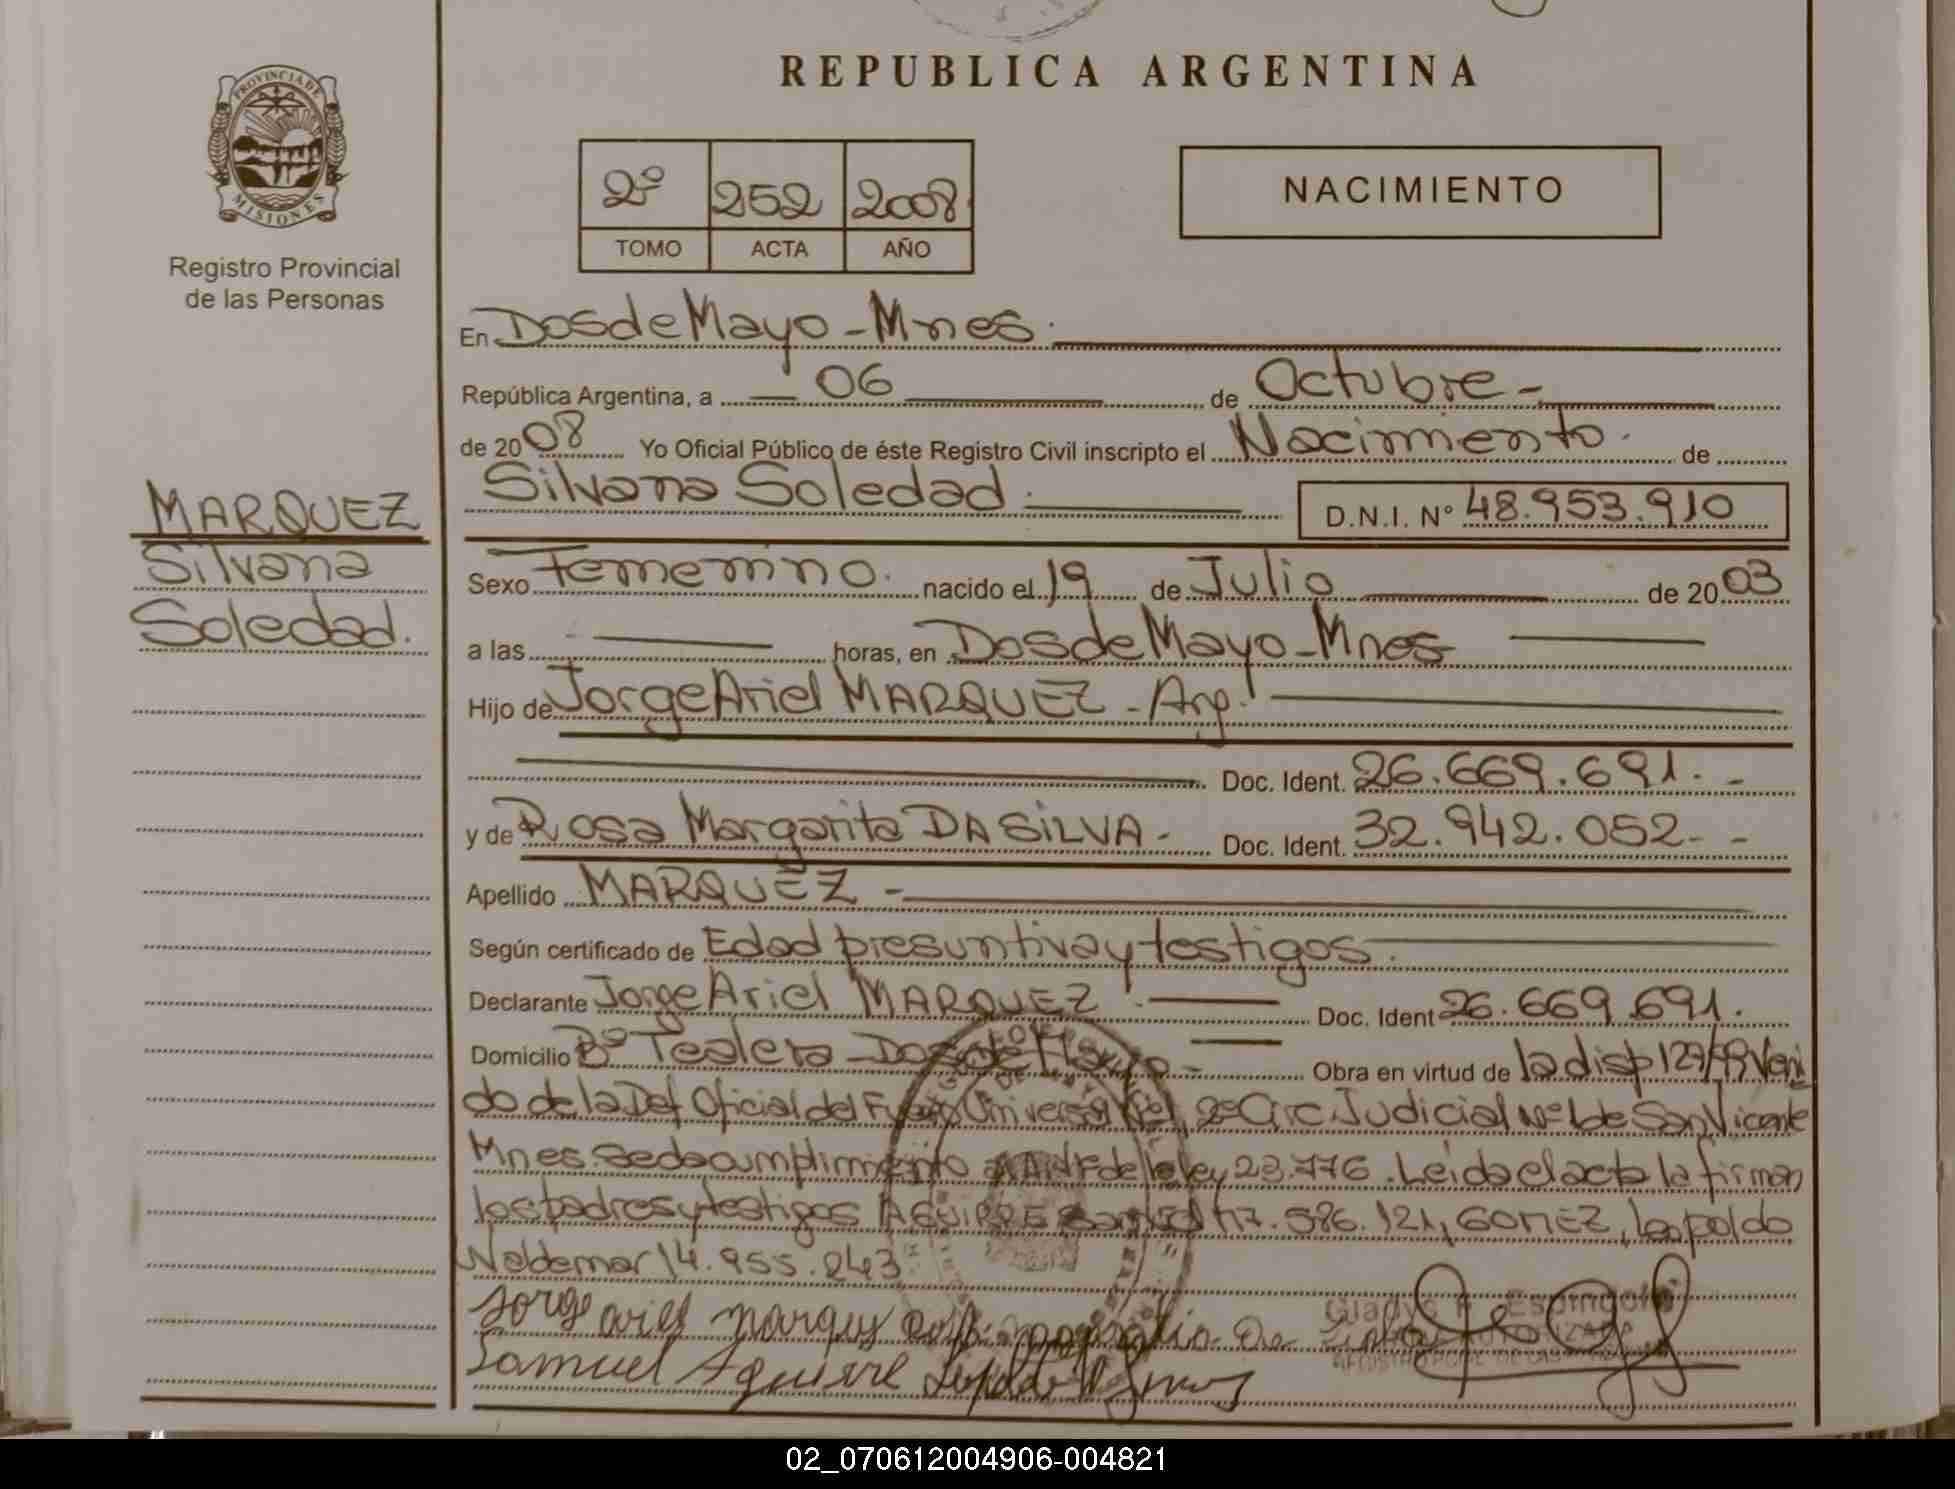 REPUBLICA ARGENTINA
PROVINCIA DE
MISIONES
Registro Provincial
de las Personas
2º 252 2008
TOMO ACTA AÑO
NACIMIENTO
En Dos de Mayo - Mnes.
República Argentina, a 06 de Octubre -
de 2008 Yo Oficial Público de éste Registro Civil inscripto el Nacimiento de
Silvana Soledad D.N.I. Nº 48.953.910
MARQUEZ
Silvana
Soledad.
Sexo Femenino. nacido el 19 de Julio de 2003
a las horas, en Dos de Mayo - Mnes
Hijo de Jorge Ariel MARQUEZ - Arg.
Doc. Ident. 26.669.691. -
y de Rosa Margarita DA SILVA - Doc. Ident. 32.942.052 - -
Apellido MARQUEZ -
Según certificado de Edad presuntiva y testigos.
Declarante Jorge Ariel MARQUEZ. Doc. Ident 26.669.691.
Domicilio Bº Tealera Dos de Mayo - Obra en virtud de la disp 127/99 Veni
do de la Def Oficial del Fuero Universal del 2º Circ Judicial Nº 1 de San Vicente
Mnes. Se da cumplimiento de la ley 23.776. Leida el acta la firman
los padres y testigos AGUIRRE Samuel 17.586.121, GOMEZ, Leopoldo
Waldemar 14.955.243
Jorge ariel marquez Da Silva
Samuel Aguirre
Gladys Espindola
AUTORIZADA
02_070612004906-004821